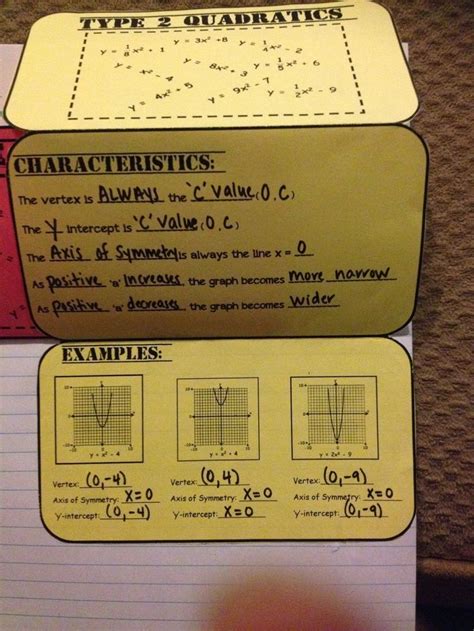 TYPE 2 QUADRATICS
y = 1/8 x² + 1 y = 3x² +8 y = 1/4 x² - 2
y = x² - 4 y = 8x² + 3 y = 1/5 x² + 6
y = 4x² + 5 y = 9x² - 7 y = 1/2 x² - 9
CHARACTERISTICS:
The vertex is ALWAYS the 'C' Value (0,C)
The Y intercept is 'C' Value (0,C)
The Axis of Symmetry is always the line x = 0
As positive 'a' increases the graph becomes more narrow
As positive 'a' decreases the graph becomes wider
EXAMPLES:
y = x² - 4 y = x² + 4 y = 2x² - 9
Vertex: (0,-4) Vertex: (0,4) Vertex: (0,-9)
Axis of Symmetry: X=0 Axis of Symmetry: X=0 Axis of Symmetry: X=0
Y-intercept: (0,-4) Y-intercept: X=0 Y-intercept: (0,-9)